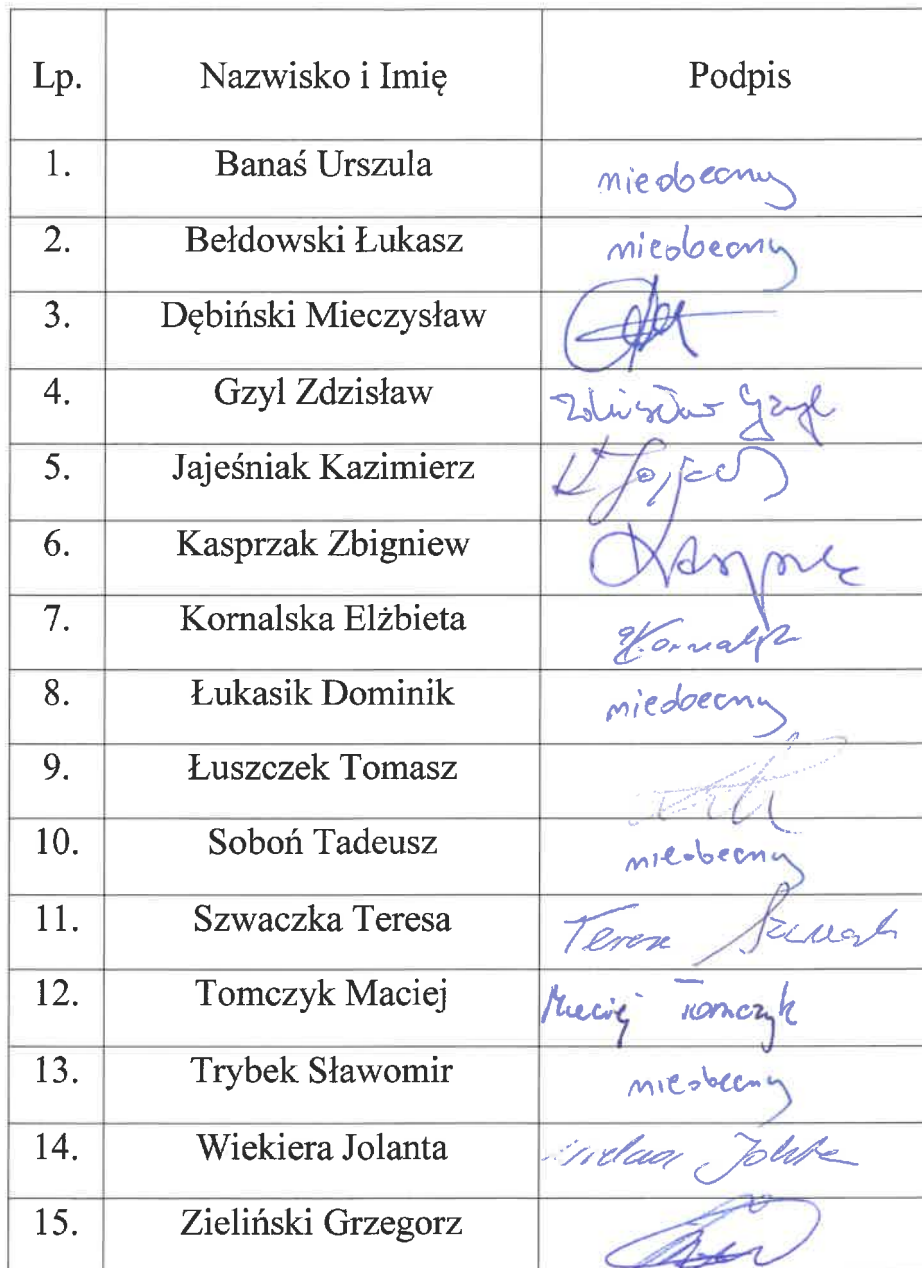 Lp. Nazwisko i Imię Podpis
1. Banaś Urszula nieobecny
2. Bełdowski Łukasz nieobecny
3. Dębiński Mieczysław
4. Gzyl Zdzisław Zdzisław Gzyl
5. Jajeśniak Kazimierz
6. Kasprzak Zbigniew
7. Kornalska Elżbieta
8. Łukasik Dominik nieobecny
9. Łuszczek Tomasz
10. Soboń Tadeusz nieobecny
11. Szwaczka Teresa Teresa
12. Tomczyk Maciej Maciej Tomczyk
13. Trybek Sławomir nieobecny
14. Wiekiera Jolanta
15. Zieliński Grzegorz